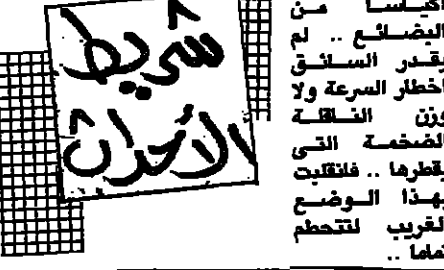 شريط
الأحداث
أكياسا من
البضائع .. لم
يقدر السائق
أخطار السرعة ولا
وزن الناقلة
الضخمة التى
يقطرها .. فانقلبت
بهذا الوضع
الغريب لتتحطم
تماما ..